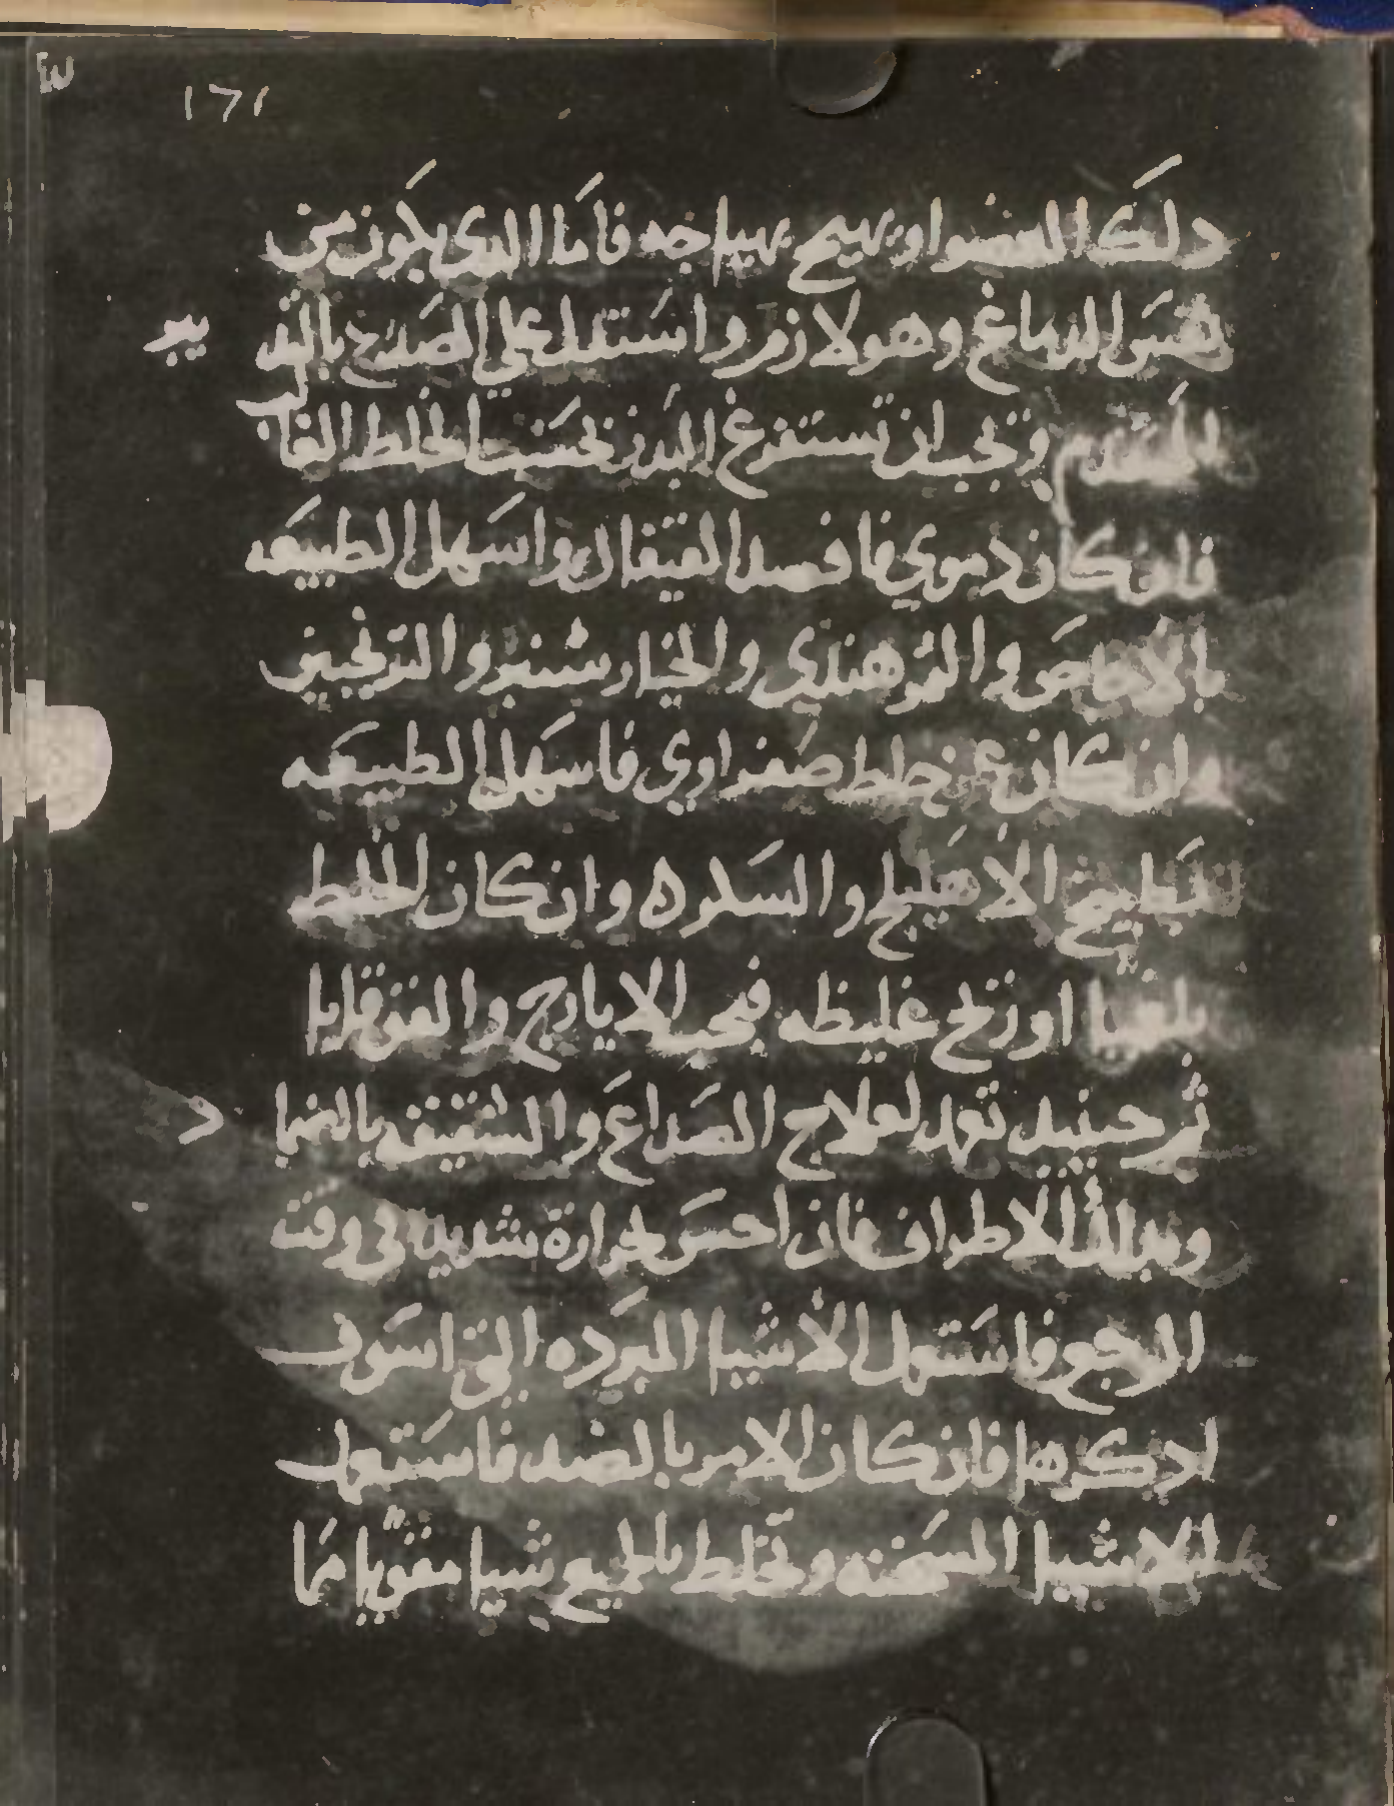 ١٦١
دلك العضو او يهيج بهياجه فاما الدى يكون من
نفس الدماغ وهو لازم واستدل على الصدع بالتد
بير
المتقدم ويجب ان تستفرغ البدن بحسب الخلط الغا
لب
فان كان دموي فافصد القيفال واسهل الطبيعه
بالاجاص والتمرهندي والخيارشنبر والترنجبين
وان كان عن خلط صفراوي فاسهل الطبيعه
بطبيخ الاهليلج والسدره وان كان الخلط
بلغميا او رٮح غليظه فبحب الايارج والقوقايا
ثم حينيد تعد لعلاج الصداع والشقيقه بالضما
د
وبدلك الاطراف فان احس بحرارة شديده في وقت
الوجع فاستعمل الاشيا المبرده التي اسوف
ادكرها فان كان الامر بالضد فاستعمل
الاشيا المسخنه وتخلط بالجميع شيا مقويا مما